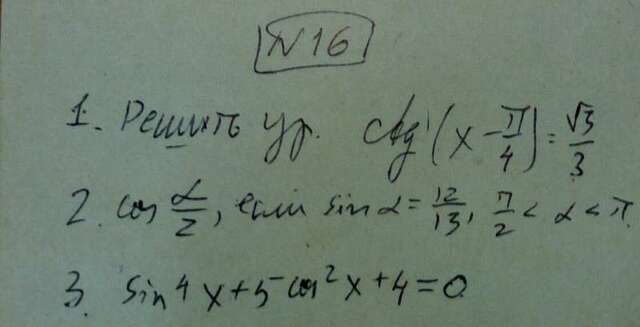 N16
1. Решить ур. ctg(x - π/4) = √3/3
2. cos α/2, если sin α = 12/13, π/2 < α < π
3. sin⁴x + 5 cos²x + 4 = 0